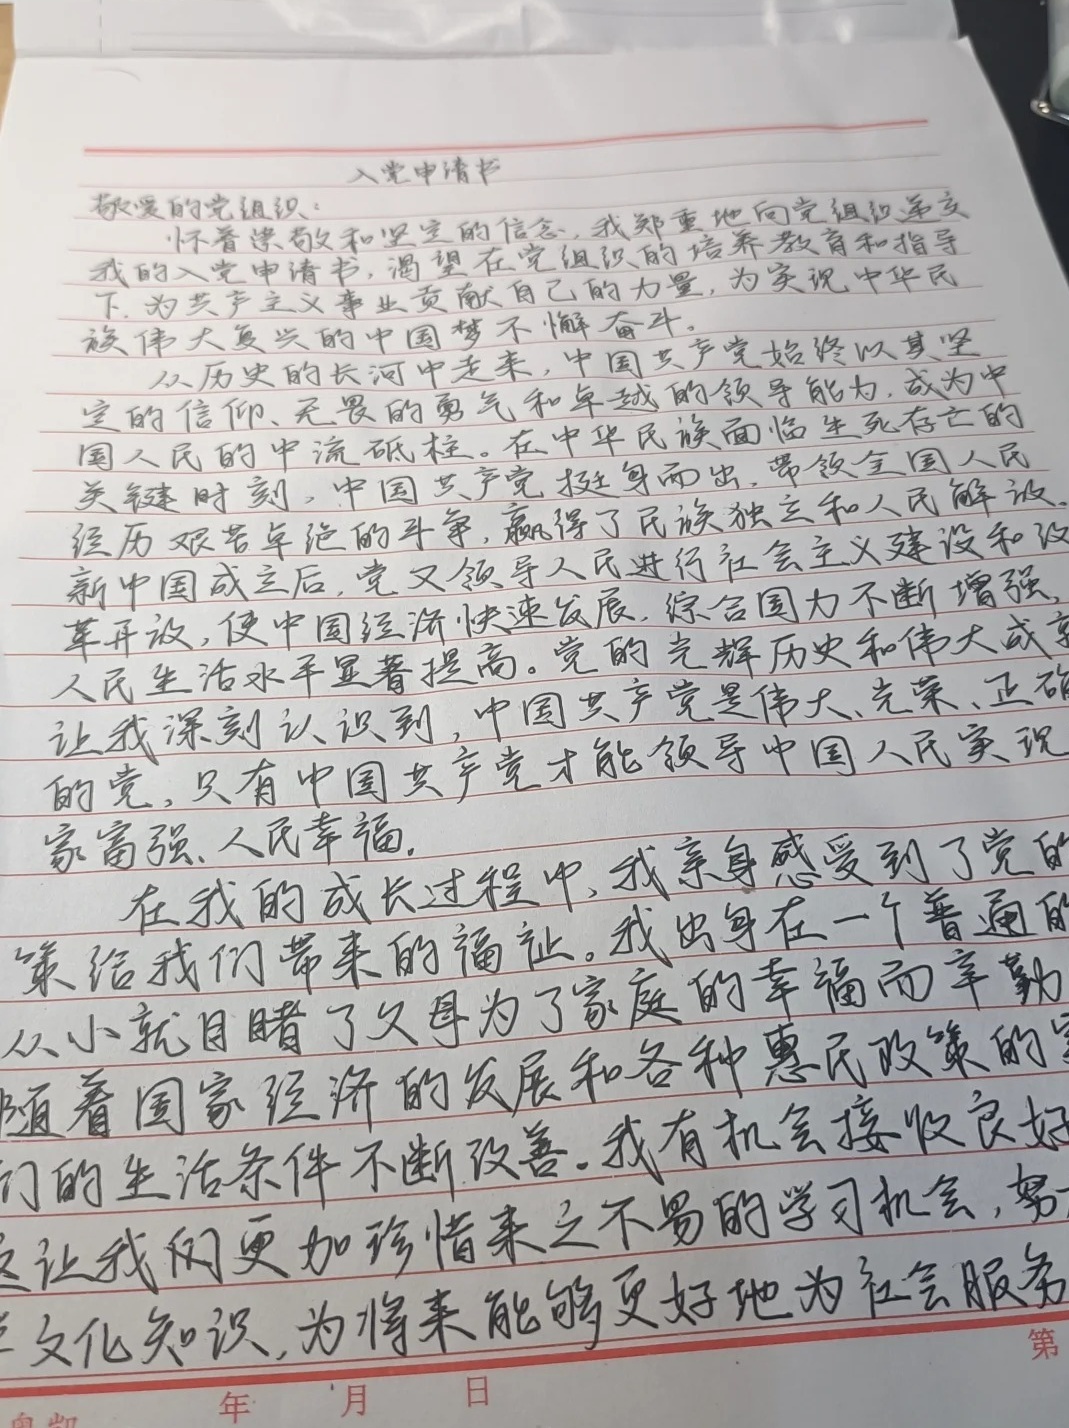 入党申请书
敬爱的党组织：
怀着崇敬和坚定的信念，我郑重地向党组织递交
我的入党申请书，渴望在党组织的培养教育和指导
下，为共产主义事业贡献自己的力量，为实现中华民
族伟大复兴的中国梦不懈奋斗。
从历史的长河中走来，中国共产党始终以其坚
定的信仰、无畏的勇气和卓越的领导能力，成为中
国人民的中流砥柱。在中华民族面临生死存亡的
关键时刻，中国共产党挺身而出，带领全国人民
经历艰苦卓绝的斗争，赢得了民族独立和人民解放。
新中国成立后，党又领导人民进行社会主义建设和改
革开放，使中国经济快速发展，综合国力不断增强，
人民生活水平显著提高。党的光辉历史和伟大成就
让我深刻认识到，中国共产党是伟大、光荣、正确
的党，只有中国共产党才能领导中国人民实现
家富强、人民幸福。
在我的成长过程中，我亲身感受到了党的
策给我们带来的福祉。我出身在一个普通的
从小就目睹了父母为了家庭的幸福而辛勤
随着国家经济的发展和各种惠民政策的
们的生活条件不断改善。我有机会接收良好
这让我更加珍惜来之不易的学习机会，努
文化知识，为将来能够更好地为社会服务
第
年 月 日